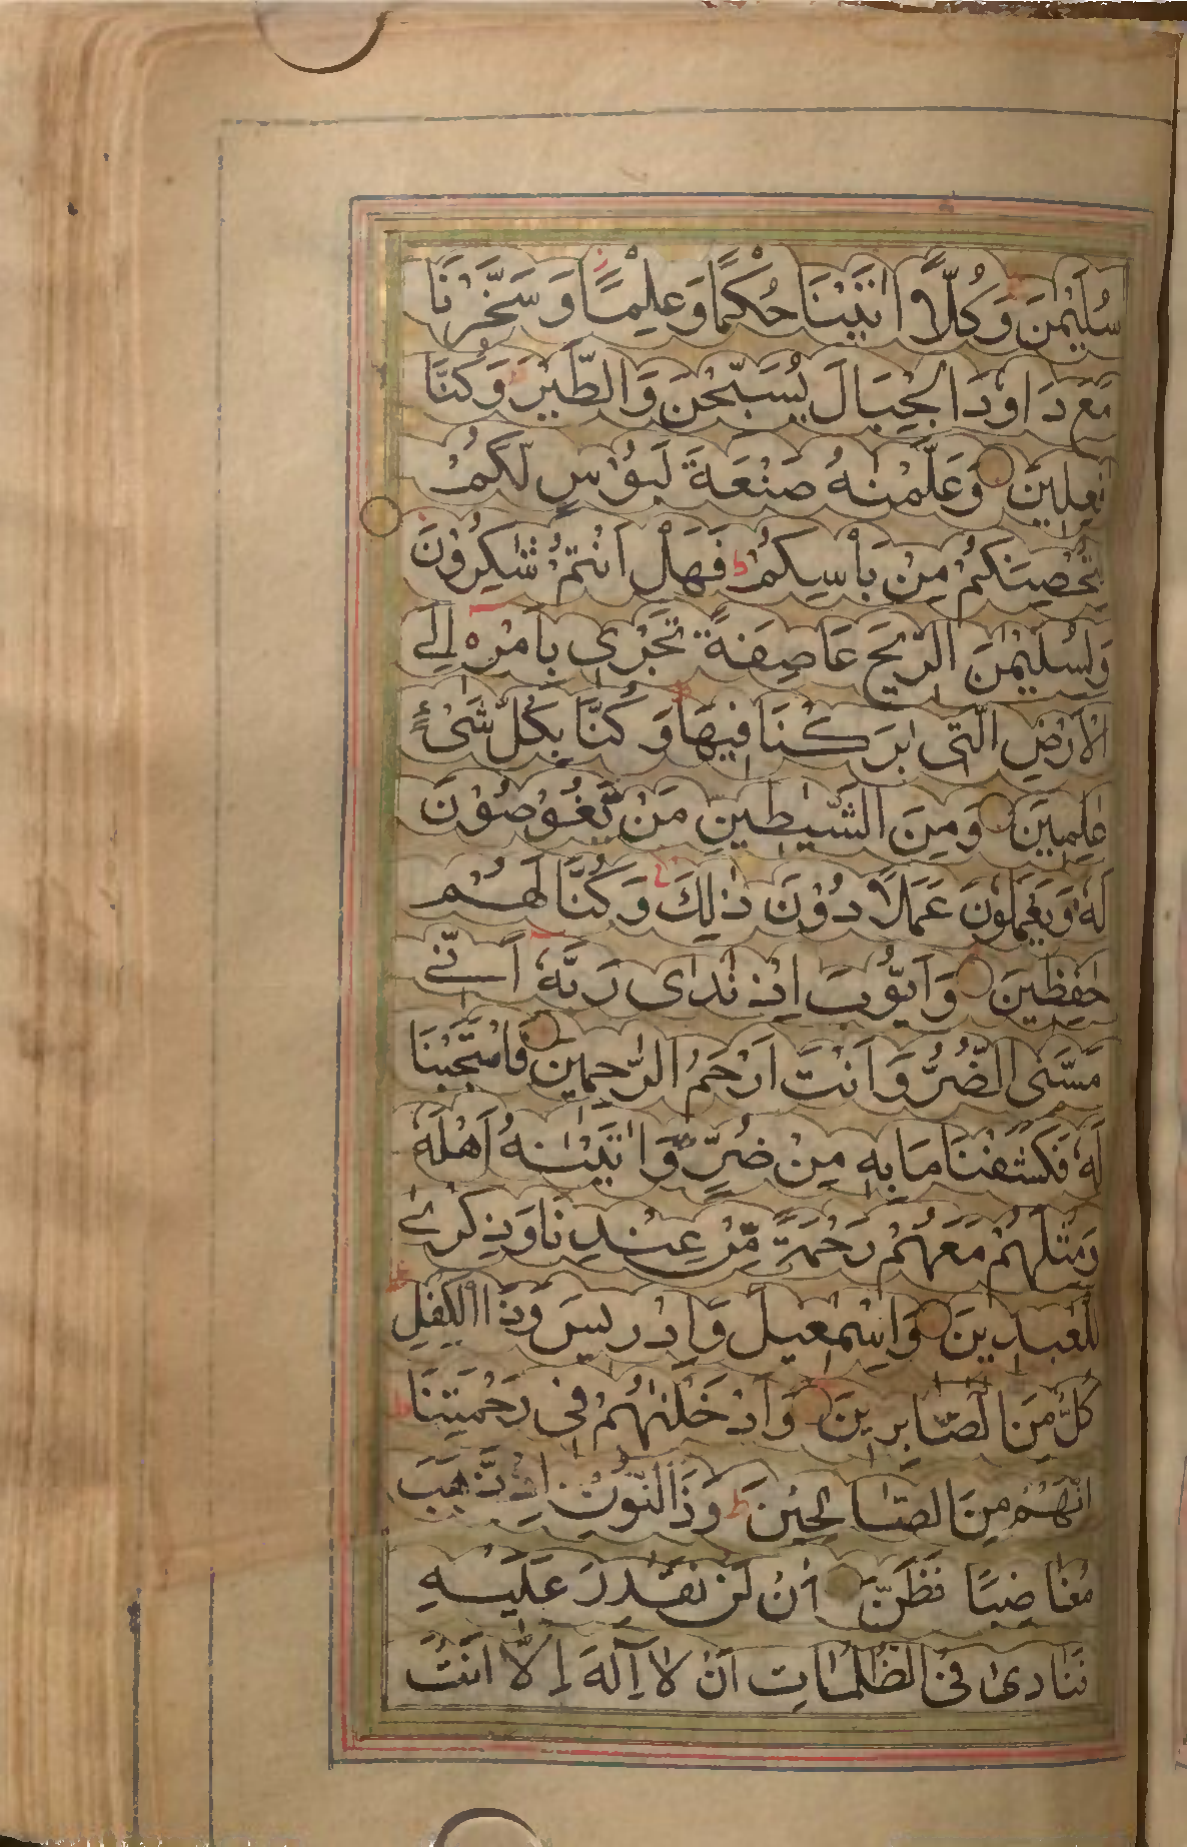 سُلَيْمٰنَ وَكُلًّا اٰتَيْنَا حُكْمًا وَعِلْمًا وَسَخَّرْنَا
مَعَ دَاوٗدَ الْجِبَالَ يُسَبِّحْنَ وَالطَّيْرَ وَكُنَّا
فٰعِلِيْنَ وَعَلَّمْنٰهُ صَنْعَةَ لَبُوْسٍ لَّكُمْ
لِتُحْصِنَكُمْ مِنْ بَاْسِكُمْ ط فَهَلْ اَنْتُمْ شٰكِرُوْنَ
وَلِسُلَيْمٰنَ الرِّيْحَ عَاصِفَةً تَجْرِيْ بِاَمْرِهٖ اِلَے
الْاَرْضِ الَّتِيْ بٰرَكْنَا فِيْهَا وَكُنَّا بِكُلِّ شَیْءٍ
عٰلِمِيْنَ وَمِنَ الشَّيٰطِيْنِ مَنْ يَّغُوْصُوْنَ
لَهٗ وَيَعْمَلُوْنَ عَمَلًا دُوْنَ ذٰلِكَ وَكُنَّا لَهُمْ
حٰفِظِيْنَ وَاَيُّوْبَ اِذْ نَادٰى رَبَّهٗ اَنِّے
مَسَّنِیَ الضُّرُّ وَاَنْتَ اَرْحَمُ الرّٰحِمِيْنَ فَاسْتَجَبْنَا
لَهٗ فَكَشَفْنَا مَا بِهٖ مِنْ ضُرٍّ وَّاٰتَيْنٰهُ اَهْلَهٗ
وَمِثْلَهُمْ مَعَهُمْ رَحْمَةً مِّنْ عِنْدِنَا وَذِكْرٰے
لِلْعٰبِدِيْنَ وَاِسْمٰعِيْلَ وَاِدْرِيْسَ وَذَا الْكِفْلِ
كُلٌّ مِنَ الصّٰابِرِيْنَ وَاَدْخَلْنٰهُمْ فِیْ رَحْمَتِنَا
اِنَّهُمْ مِنَ الصّٰالِحِيْنَ ط وَذَا النُّوْنِ اِذْ ذَّهَبَ
مُغَاضِبًا فَظَنَّ اَنْ لَنْ نَقْدِرَ عَلَيْهِ
فَنَادٰى فِی الظُّلُمَاتِ اَنْ لَا اِلٰهَ اِلَّا اَنْتَ